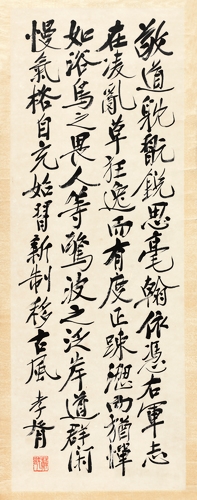 敬道耽翫銳思毫翰依憑右軍志
在凌亂草狂逸而有度正踈澀而猶憚
如浴鳥之畏人等驚波之泛岸道群閑
慢氣格自充始習新制移古風 孝胥